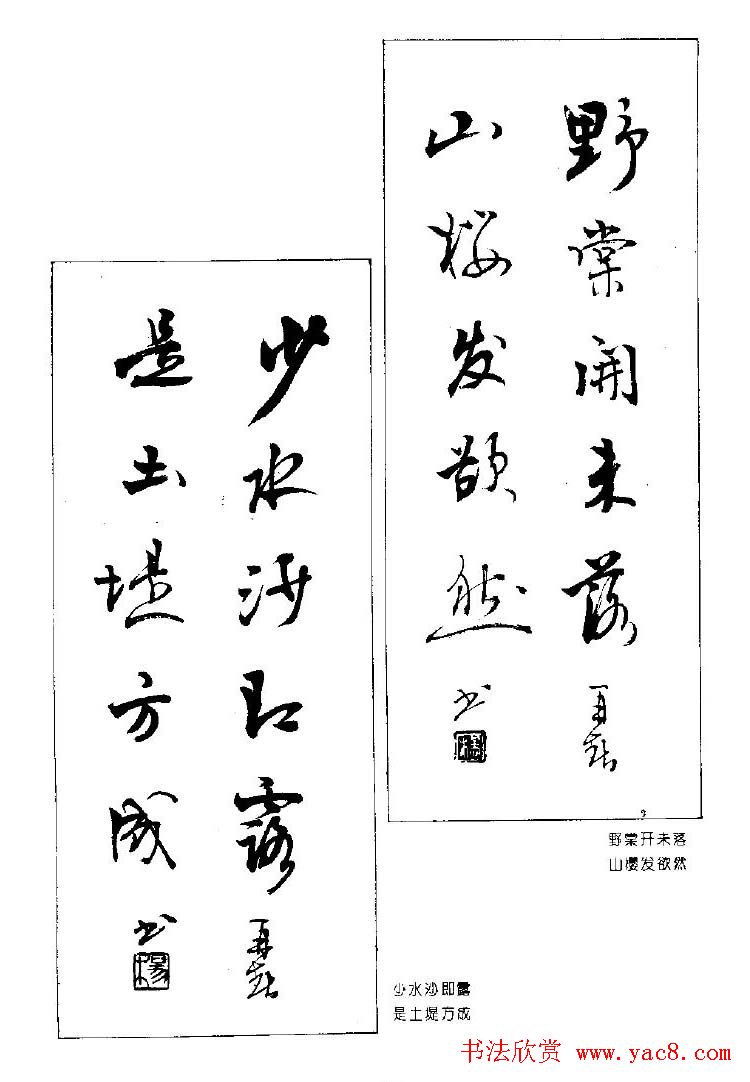 野棠開未落 再春
山樱发欲然 书
野棠开未落
山樱发欲然
少水沙即露 再春
是土堤方成 书
杨
少水沙即露
是土堤方成
书法欣赏 www.yac8.com